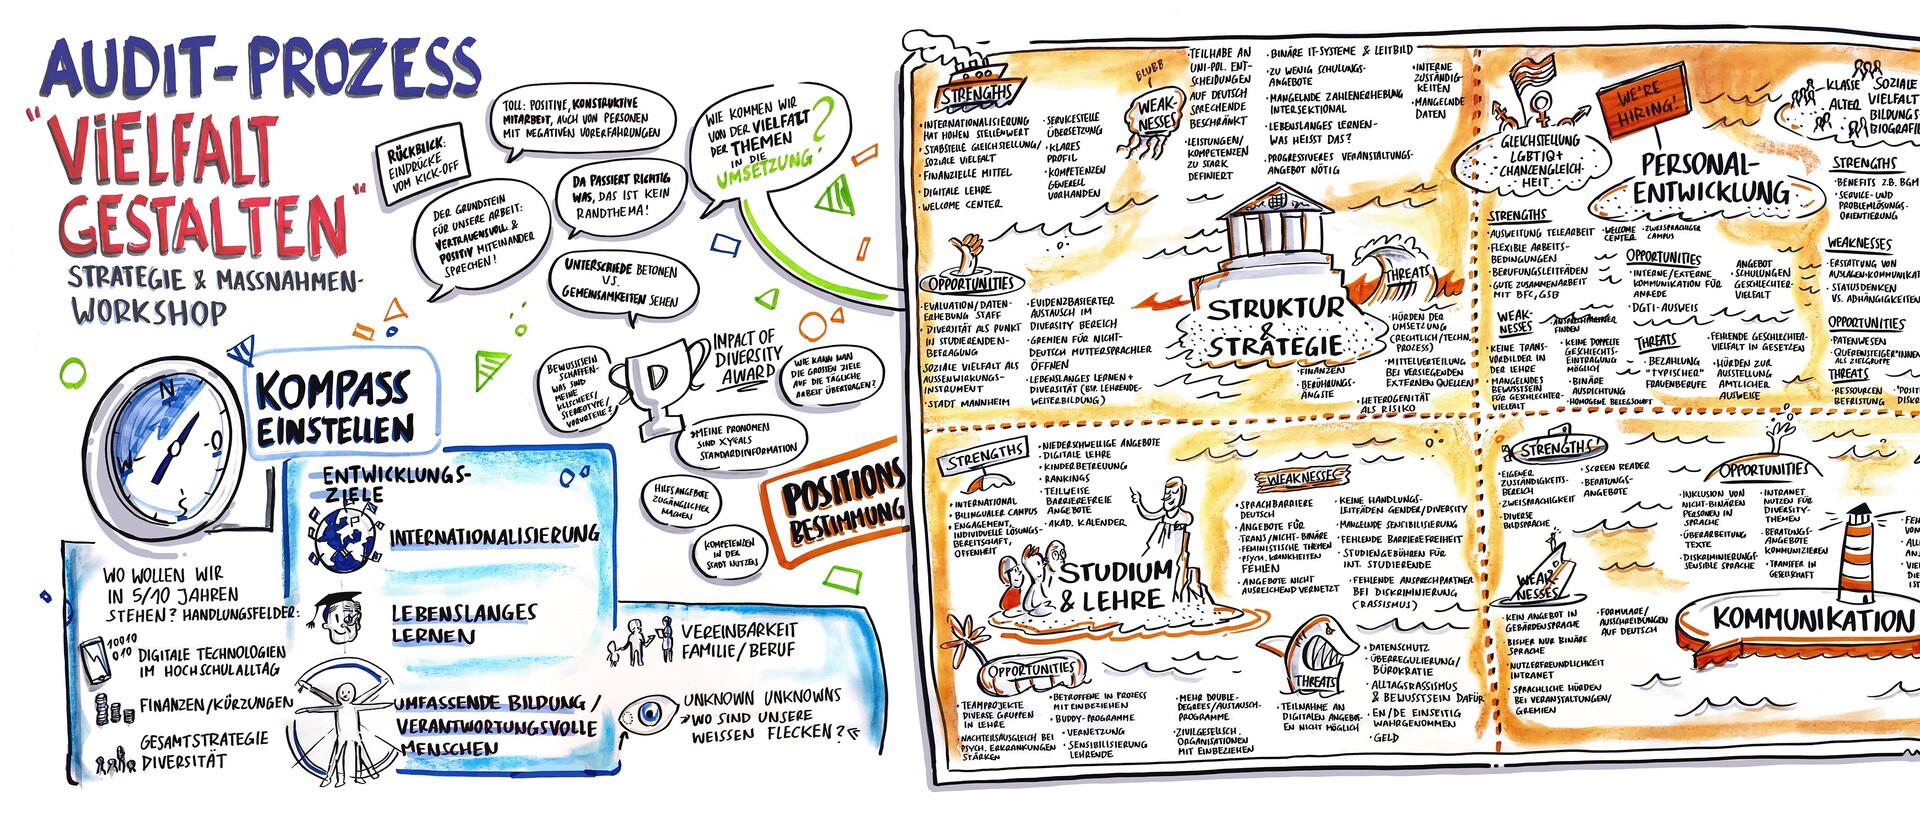 AUDIT-PROZESS
"VIELFALT
GESTALTEN"
STRATEGIE & MASSNAHMEN-
WORKSHOP
RÜCKBLICK:
EINDRÜCKE
VOM KICK-OFF
TOLL: POSITIVE, KONSTRUKTIVE
MITARBEIT, AUCH VON PERSONEN
MIT NEGATIVEN VORERFAHRUNGEN
DER GRUNDSTEIN
FÜR UNSERE ARBEIT:
VERTRAUENSVOLL &
POSITIV MITEINANDER
SPRECHEN!
DA PASSIERT RICHTIG
WAS, DAS IST KEIN
RANDTHEMA!
UNTERSCHIEDE BETONEN
V.S.
GEMEINSAMKEITEN SEHEN
WIE KOMMEN WIR
VON DER VIELFALT
DER THEMEN
IN DIE
UMSETZUNG?
BEWUSSTSEIN
SCHAFFEN-
WAS SIND
MEINE
KLISCHEES/
STEREOTYPE/
VORURTEILE?
D
IMPACT OF
DIVERSITY
AWARD
WIE KANN MAN
DIE GROSSEN ZIELE
AUF DIE TÄGLICHE
ARBEIT ÜBERTRAGEN?
»MEINE PRONOMEN
SIND XY«ALS
STANDARDINFORMATION
HILFSANGEBOTE
ZUGÄNGLICHER
MACHEN
KOMPETENZEN
IN DER
STADT NUTZEN
POSITIONS
BESTIMMUNG
N
O
S
W
KOMPASS
EINSTELLEN
ENTWICKLUNGS-
ZIELE
INTERNATIONALISIERUNG
LEBENSLANGES
LERNEN
UMFASSENDE BILDUNG /
VERANTWORTUNGSVOLLE
MENSCHEN
WO WOLLEN WIR
IN 5/10 JAHREN
STEHEN? HANDLUNGSFELDER:
10010
010
DIGITALE TECHNOLOGIEN
IM HOCHSCHULALLTAG
FINANZEN/KÜRZUNGEN
GESAMTSTRATEGIE
DIVERSITÄT
VEREINBARKEIT
FAMILIE/BERUF
UNKNOWN UNKNOWNS
»WO SIND UNSERE
WEISSEN FLECKEN?«
STRENGTHS
·INTERNATIONALISIERUNG
HAT HOHEN STELLENWERT
·STABSTELLE GLEICHSTELLUNG/
SOZIALE VIELFALT
·FINANZIELLE MITTEL
·DIGITALE LEHRE
·WELCOME CENTER
·SERVICESTELLE
ÜBERSETZUNG
·KLARES
PROFIL
·KOMPETENZEN
GENERELL
VORHANDEN
BLUBB
WEAK-
NESSES
·TEILHABE AN
UNI-POL. ENT-
SCHEIDUNGEN
AUF DEUTSCH
SPRECHENDE
BESCHRÄNKT
·LEISTUNGEN/
KOMPETENZEN
ZU STARK
DEFINIERT
·BINÄRE IT-SYSTEME & LEITBILD
·ZU WENIG SCHULUNGS-
ANGEBOTE
·MANGELNDE ZAHLENERHEBUNG
INTERSEKTIONAL
·LEBENSLANGES LERNEN-
WAS HEISST DAS?
·PROGRESSIVERES VERANSTALTUNGS-
ANGEBOT NÖTIG
·INTERNE
ZUSTÄNDIG-
KEITEN
·MANGELNDE
DATEN
OPPORTUNITIES
·EVALUATION/DATEN-
ERHEBUNG STAFF
·DIVERSITÄT ALS PUNKT
IN STUDIERENDEN-
BEFRAGUNG
SOZIALE VIELFALT ALS
AUSSENWIRKUNGS-
INSTRUMENT
·STADT MANNHEIM
·EVIDENZBASIERTER
AUSTAUSCH IM
DIVERSITY BEREICH
·GREMIEN FÜR NICHT-
DEUTSCH MUTTERSPRACHLER
ÖFFNEN
·LEBENSLANGES LERNEN+
DIVERSITÄT (BSP. LEHRENDE-
WEITERBILDUNG)
STRUKTUR
&
STRATEGIE
THREATS
·HÜRDEN DER
UMSETZUNG
(RECHTLICH/TECHN.
PROZESS)
·MITTELVERTEILUNG
BEI VERSIEGENDEN
EXTERNEN QUELLEN
·FINANZEN
·BERÜHRUNGS-
ÄNGSTE
·HETEROGENITÄT
ALS RISIKO
GLEICHSTELLUNG
LGBTIQ+
CHANCENGLEICH-
HEIT
WE'RE
HIRING!
PERSONAL-
ENTWICKLUNG
STRENGTHS
·AUSWEITUNG TELEARBEIT
·FLEXIBLE ARBEITS-
BEDINGUNGEN
·BERUFUNGSLEITFÄDEN
·GUTE ZUSAMMENARBEIT
MIT BFC, GSB
·WELCOME
CENTER
·ZWEISPRACHIGER
CAMPUS
OPPORTUNITIES
·INTERNE/EXTERNE
KOMMUNIKATION FÜR
ANREDE
·DGTI-AUSWEIS
ANGEBOT
·SCHULUNGEN
GESCHLECHTER-
VIELFALT
WEAK-
NESSES
·KEINE TRANS-
VORBILDER IN
DER LEHRE
·MANGELNDES
BEWUSSTSEIN
FÜR GESCHLECHTER-
VIELFALT
·ANSPRECHPARTNER
FINDEN
·KEINE DOPPELTE
GESCHLECHTS-
EINTRAGUNG
MÖGLICH
·BINÄRE
AUSRICHTUNG
·HOMOGENE BELEGSCHAFT
THREATS
·BEZAHLUNG
"TYPISCHER"
FRAUENBERUFE
·FEHLENDE GESCHLECHTER-
VIELFALT IN GESETZEN
·HÜRDEN ZUR
AUSSTELLUNG
AMTLICHER
AUSWEISE
KLASSE
ALTER
SOZIALE
VIELFALT
BILDUNGS-
STRENGTHS
·BENEFITS Z.B. BGM
·SERVICE- UND
PROBLEMLÖSUNGS-
ORIENTIERUNG
WEAKNESSES
·ERSTATTUNG VON
·STATUSDENKEN
VS. ABHÄNGIGKEITEN
OPPORTUNITIES
·PATENWESEN
ALS ZIELGRUPPE
THREATS
·RESSOURCEN
BEFRISTUNG
STRENGTHS
·INTERNATIONAL
·BILINGUALER CAMPUS
·ENGAGEMENT,
INDIVIDUELLE LÖSUNGS-
BEREITSCHAFT,
OFFENHEIT
·NIEDERSCHWELLIGE ANGEBOTE
·DIGITALE LEHRE
·KINDERBETREUUNG
·RANKINGS
·TEILWEISE
BARRIEREFREIE
ANGEBOTE
·AKAD. KALENDER
STUDIUM
& LEHRE
WEAKNESSES
·SPRACHBARRIERE
DEUTSCH
·ANGEBOTE FÜR
TRANS/NICHT-BINÄRE
·FEMINISTISCHE THEMEN
·PSYCH. KRANKHEITEN
FEHLEN
·ANGEBOTE NICHT
AUSREICHEND VERNETZT
·KEINE HANDLUNGS-
LEITFÄDEN GENDER/DIVERSITY
·MANGELNDE SENSIBILISIERUNG
·FEHLENDE BARRIEREFREIHEIT
·STUDIENGEBÜHREN FÜR
INT. STUDIERENDE
·FEHLENDE ANSPRECHPARTNER
BEI DISKRIMINIERUNG
(RASSISMUS)
OPPORTUNITIES
·TEAMPROJEKTE
DIVERSE GRUPPEN
IN LEHRE
·NACHTEILSAUSGLEICH BEI
PSYCH. ERKRANKUNGEN
STÄRKEN
·BETROFFENE IN PROZESS
MIT EINBEZIEHEN
·BUDDY-PROGRAMME
·VERNETZUNG
·SENSIBILISIERUNG
LEHRENDE
·MEHR DOUBLE-
DEGREES/AUSTAUSCH-
PROGRAMME
·ZIVILGESELLSCH.
ORGANISATIONEN
MIT EINBEZIEHEN
THREATS
·TEILNAHME AN
DIGITALEN ANGEBOT-
EN NICHT MÖGLICH
·DATENSCHUTZ
·ÜBERREGULIERUNG/
BÜROKRATIE
·ALLTAGSRASSISMUS
& BEWUSSTSEIN DAFÜR
·EN/DE EINSEITIG
WAHRGENOMMEN
·GELD
STRENGTHS
·EIGENER
ZUSTÄNDIGKEITS-
BEREICH
·ZWEISPRACHIGKEIT
·DIVERSE
BILDSPRACHE
·SCREEN READER
·BERATUNGS-
ANGEBOTE
OPPORTUNITIES
·INKLUSION VON
NICHT-BINÄREN
PERSONEN IN
SPRACHE
·ÜBERARBEITUNG
TEXTE
·DISKRIMINIERUNGS-
SENSIBLE SPRACHE
·INTRANET
NUTZEN FÜR
DIVERSITY-
THEMEN
·BERATUNGS-
ANGEBOTE
KOMMUNIZIEREN
·TRANSFER IN
GESELLSCHAFT
WEAK-
NESSES
·KEIN ANGEBOT IN
GEBÄRDENSPRACHE
·BISHER NUR BINÄRE
SPRACHE
·NUTZERFREUNDLICHKEIT
INTRANET
·SPRACHLICHE HÜRDEN
BEI VERANSTALTUNGEN/
GREMIEN
·FORMULARE/
AUSSCHREIBUNGEN
AUF DEUTSCH
KOMMUNIKATION